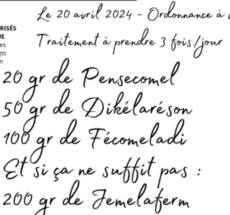 Le 20 avril 2024 - Ordonnance à
RISÉS
UE
Traitement à prendre 3 fois/jour
20 gr de Pensecomel
50 gr de Dikélaréson
100 gr de Fécomeladi
Et si ça ne suffit pas :
200 gr de Jemelaferm